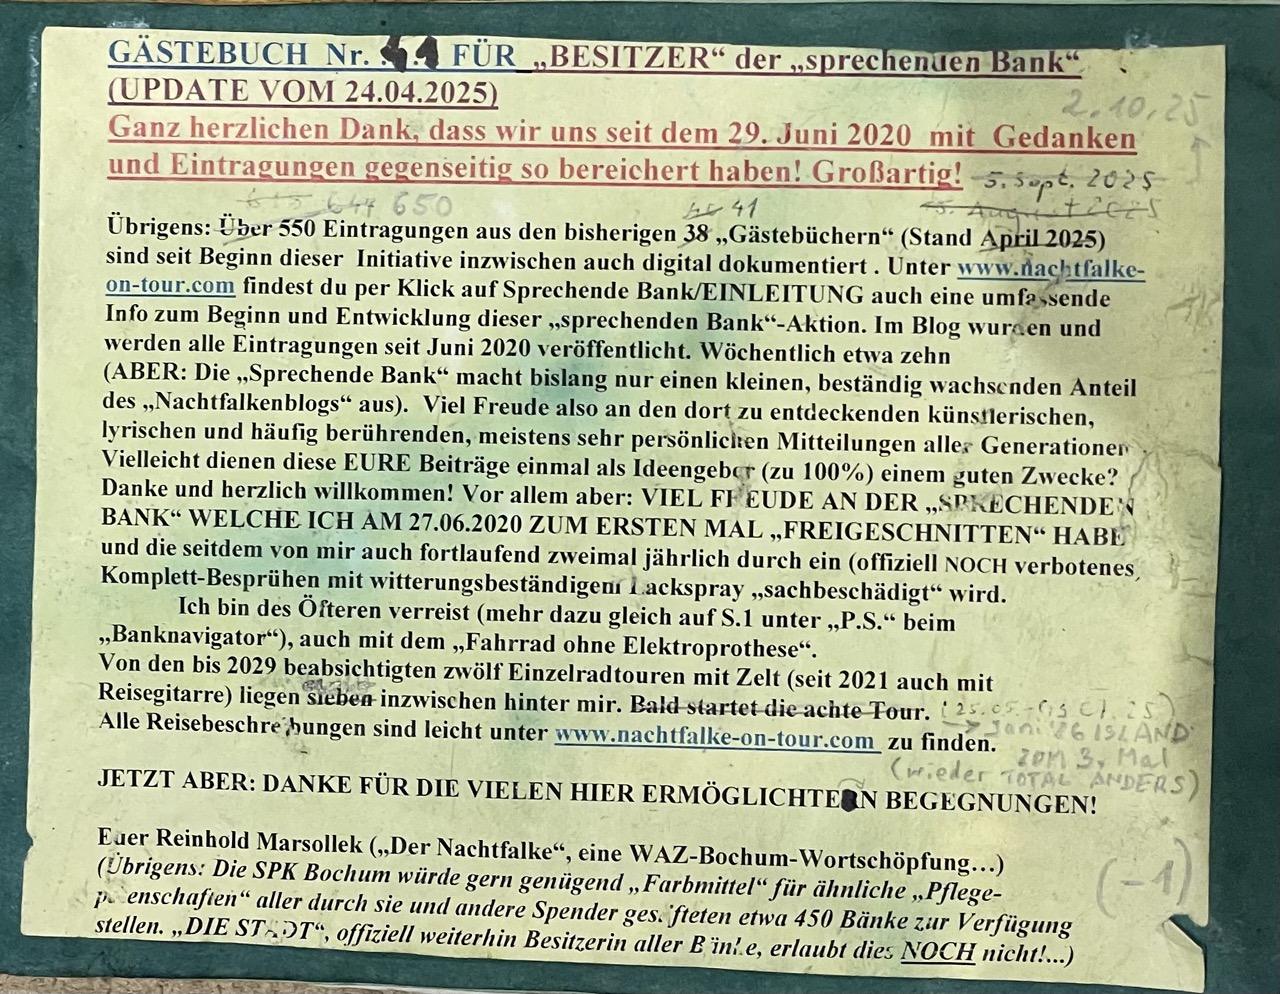 GÄSTEBUCH Nr. 41 FÜR „BESITZER“ der „sprechenden Bank“
(UPDATE VOM 24.04.2025)
2.10.25
Ganz herzlichen Dank, dass wir uns seit dem 29. Juni 2020 mit Gedanken
und Eintragungen gegenseitig so bereichert haben! Großartig! 5. Sept. 2025
615 644 650
41
15. August 2025
Übrigens: Über 550 Eintragungen aus den bisherigen 38 „Gästebüchern“ (Stand April 2025)
sind seit Beginn dieser Initiative inzwischen auch digital dokumentiert . Unter www.nachtfalke-
on-tour.com findest du per Klick auf Sprechende Bank/EINLEITUNG auch eine umfassende
Info zum Beginn und Entwicklung dieser „sprechenden Bank“-Aktion. Im Blog wurden und
werden alle Eintragungen seit Juni 2020 veröffentlicht. Wöchentlich etwa zehn
(ABER: Die „Sprechende Bank“ macht bislang nur einen kleinen, beständig wachsenden Anteil
des „Nachtfalkenblogs“ aus). Viel Freude also an den dort zu entdeckenden künstlerischen,
lyrischen und häufig berührenden, meistens sehr persönlichen Mitteilungen aller Generationen
Vielleicht dienen diese EURE Beiträge einmal als Ideengeber (zu 100%) einem guten Zwecke?
Danke und herzlich willkommen! Vor allem aber: VIEL FREUDE AN DER „SPRECHENDEN
BANK“ WELCHE ICH AM 27.06.2020 ZUM ERSTEN MAL „FREIGESCHNITTEN“ HABE
und die seitdem von mir auch fortlaufend zweimal jährlich durch ein (offiziell NOCH verbotenes
Komplett-Besprühen mit witterungsbeständigem Lackspray „sachbeschädigt“ wird.
Ich bin des Öfteren verreist (mehr dazu gleich auf S.1 unter „P.S.“ beim
„Banknavigator“), auch mit dem „Fahrrad ohne Elektroprothese“.
Von den bis 2029 beabsichtigten zwölf Einzelradtouren mit Zelt (seit 2021 auch mit
Reisegitarre) liegen sieben inzwischen hinter mir. Bald startet die achte Tour.
Alle Reisebeschreibungen sind leicht unter www.nachtfalke-on-tour.com zu finden.
→ Juni '26 ISLAND
ZUM 3. Mal
(wieder TOTAL ANDERS)
JETZT ABER: DANKE FÜR DIE VIELEN HIER ERMÖGLICHTEN BEGEGNUNGEN!
Euer Reinhold Marsollek („Der Nachtfalke“, eine WAZ-Bochum-Wortschöpfung…)
(-1)
(Übrigens: Die SPK Bochum würde gern genügend „Farbmittel“ für ähnliche „Pflege-
patenschaften“ aller durch sie und andere Spender gestifteten etwa 450 Bänke zur Verfügung
stellen. „DIE STADT“, offiziell weiterhin Besitzerin aller Bänke, erlaubt dies NOCH nicht!...)